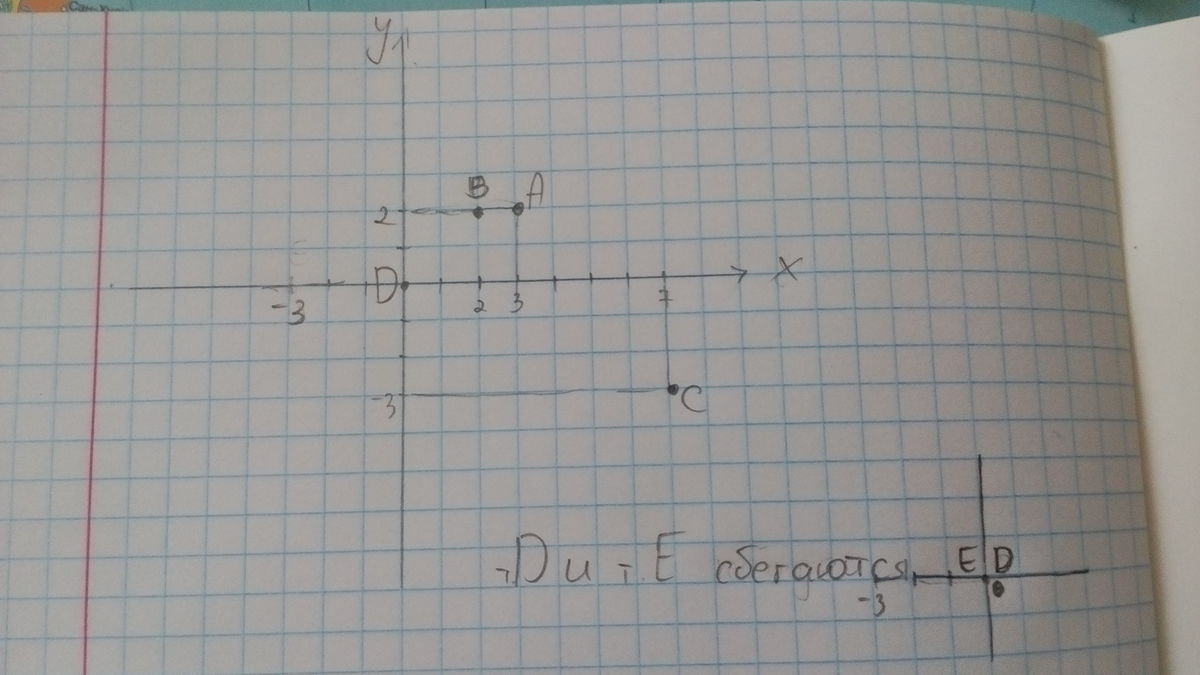 y
B A
2
D
X
-3 2 3 7
-3
C
т.D и т. E сбегаются
E D
-3 0